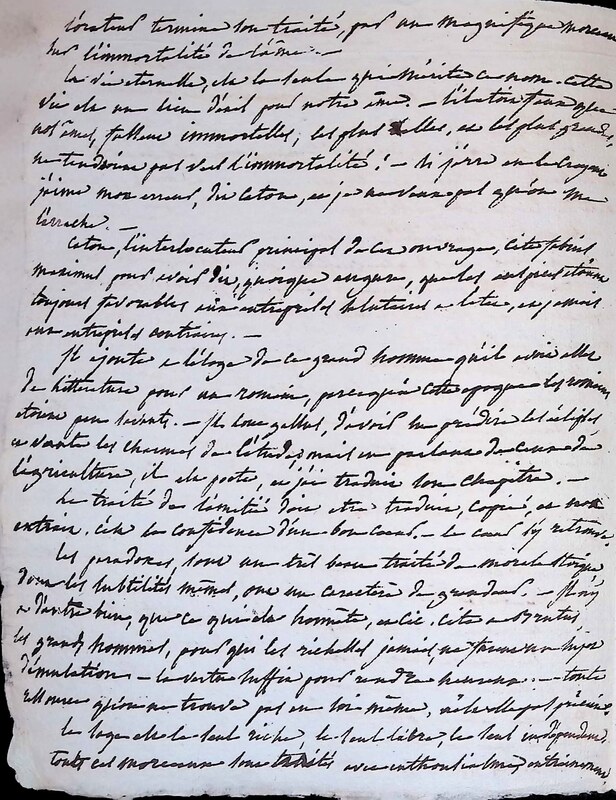 l'orateur termine son traité, par un magnifique morceau
sur l'immortalité de l'âme. —
la vie éternelle, est la seule qui mérite ce nom. cette
vie est un lieu d'exil pour notre âme. —
nos âmes, fussent immortelles, les plus belles, et les plus grandes,
ne tendraient pas vers l'immortalité! — si j'erre en le croyant
j'aime mon erreur, dit Caton, et je ne veux pas qu'on me
l'arrache. —
Caton, l'interlocuteur principal de cet ouvrage, cite fabius
maximus pour avoir dit, quoique augure, que les auspices étaient
toujours favorables aux entreprises salutaires a l'état, et jamais
aux entreprises contraires. —
Il ajoute a l'éloge de ce grand homme qu'il avoit assez
de littérature pour un romain, parce qu'à cette époque les romains
étaient peu savants. — Il loue gallus, d'avoir su prédire les éclipses
il vante les charmes de l'étude, mais en parlant de ceux de
l'agriculture, il est poete, et j'ai traduit son chapitre. —
Le traité de l'amitié doit etre traduit, copié, et non
extrait. c'est la confidence d'un bon coeur. — le coeur s'y retrouve.
Les paradoxes, sont un très beau traité de morale stoique
dont les subtilités mêmes, ont un caractère de grandeur. — Il n'y
a d'autre bien, que ce qui est honnête, et Cic. cite a Brutus
les grands hommes, pour qui les richesses jamais, ne furent un sujet
d'émulation — la vertu suffit pour rendre heureux. — toute
ressource qu'on ne trouve pas en soi même,
Le sage est le seul riche, le seul libre, le seul indépendant.
toutes ces morceaux sont traités avec enthousiasme,